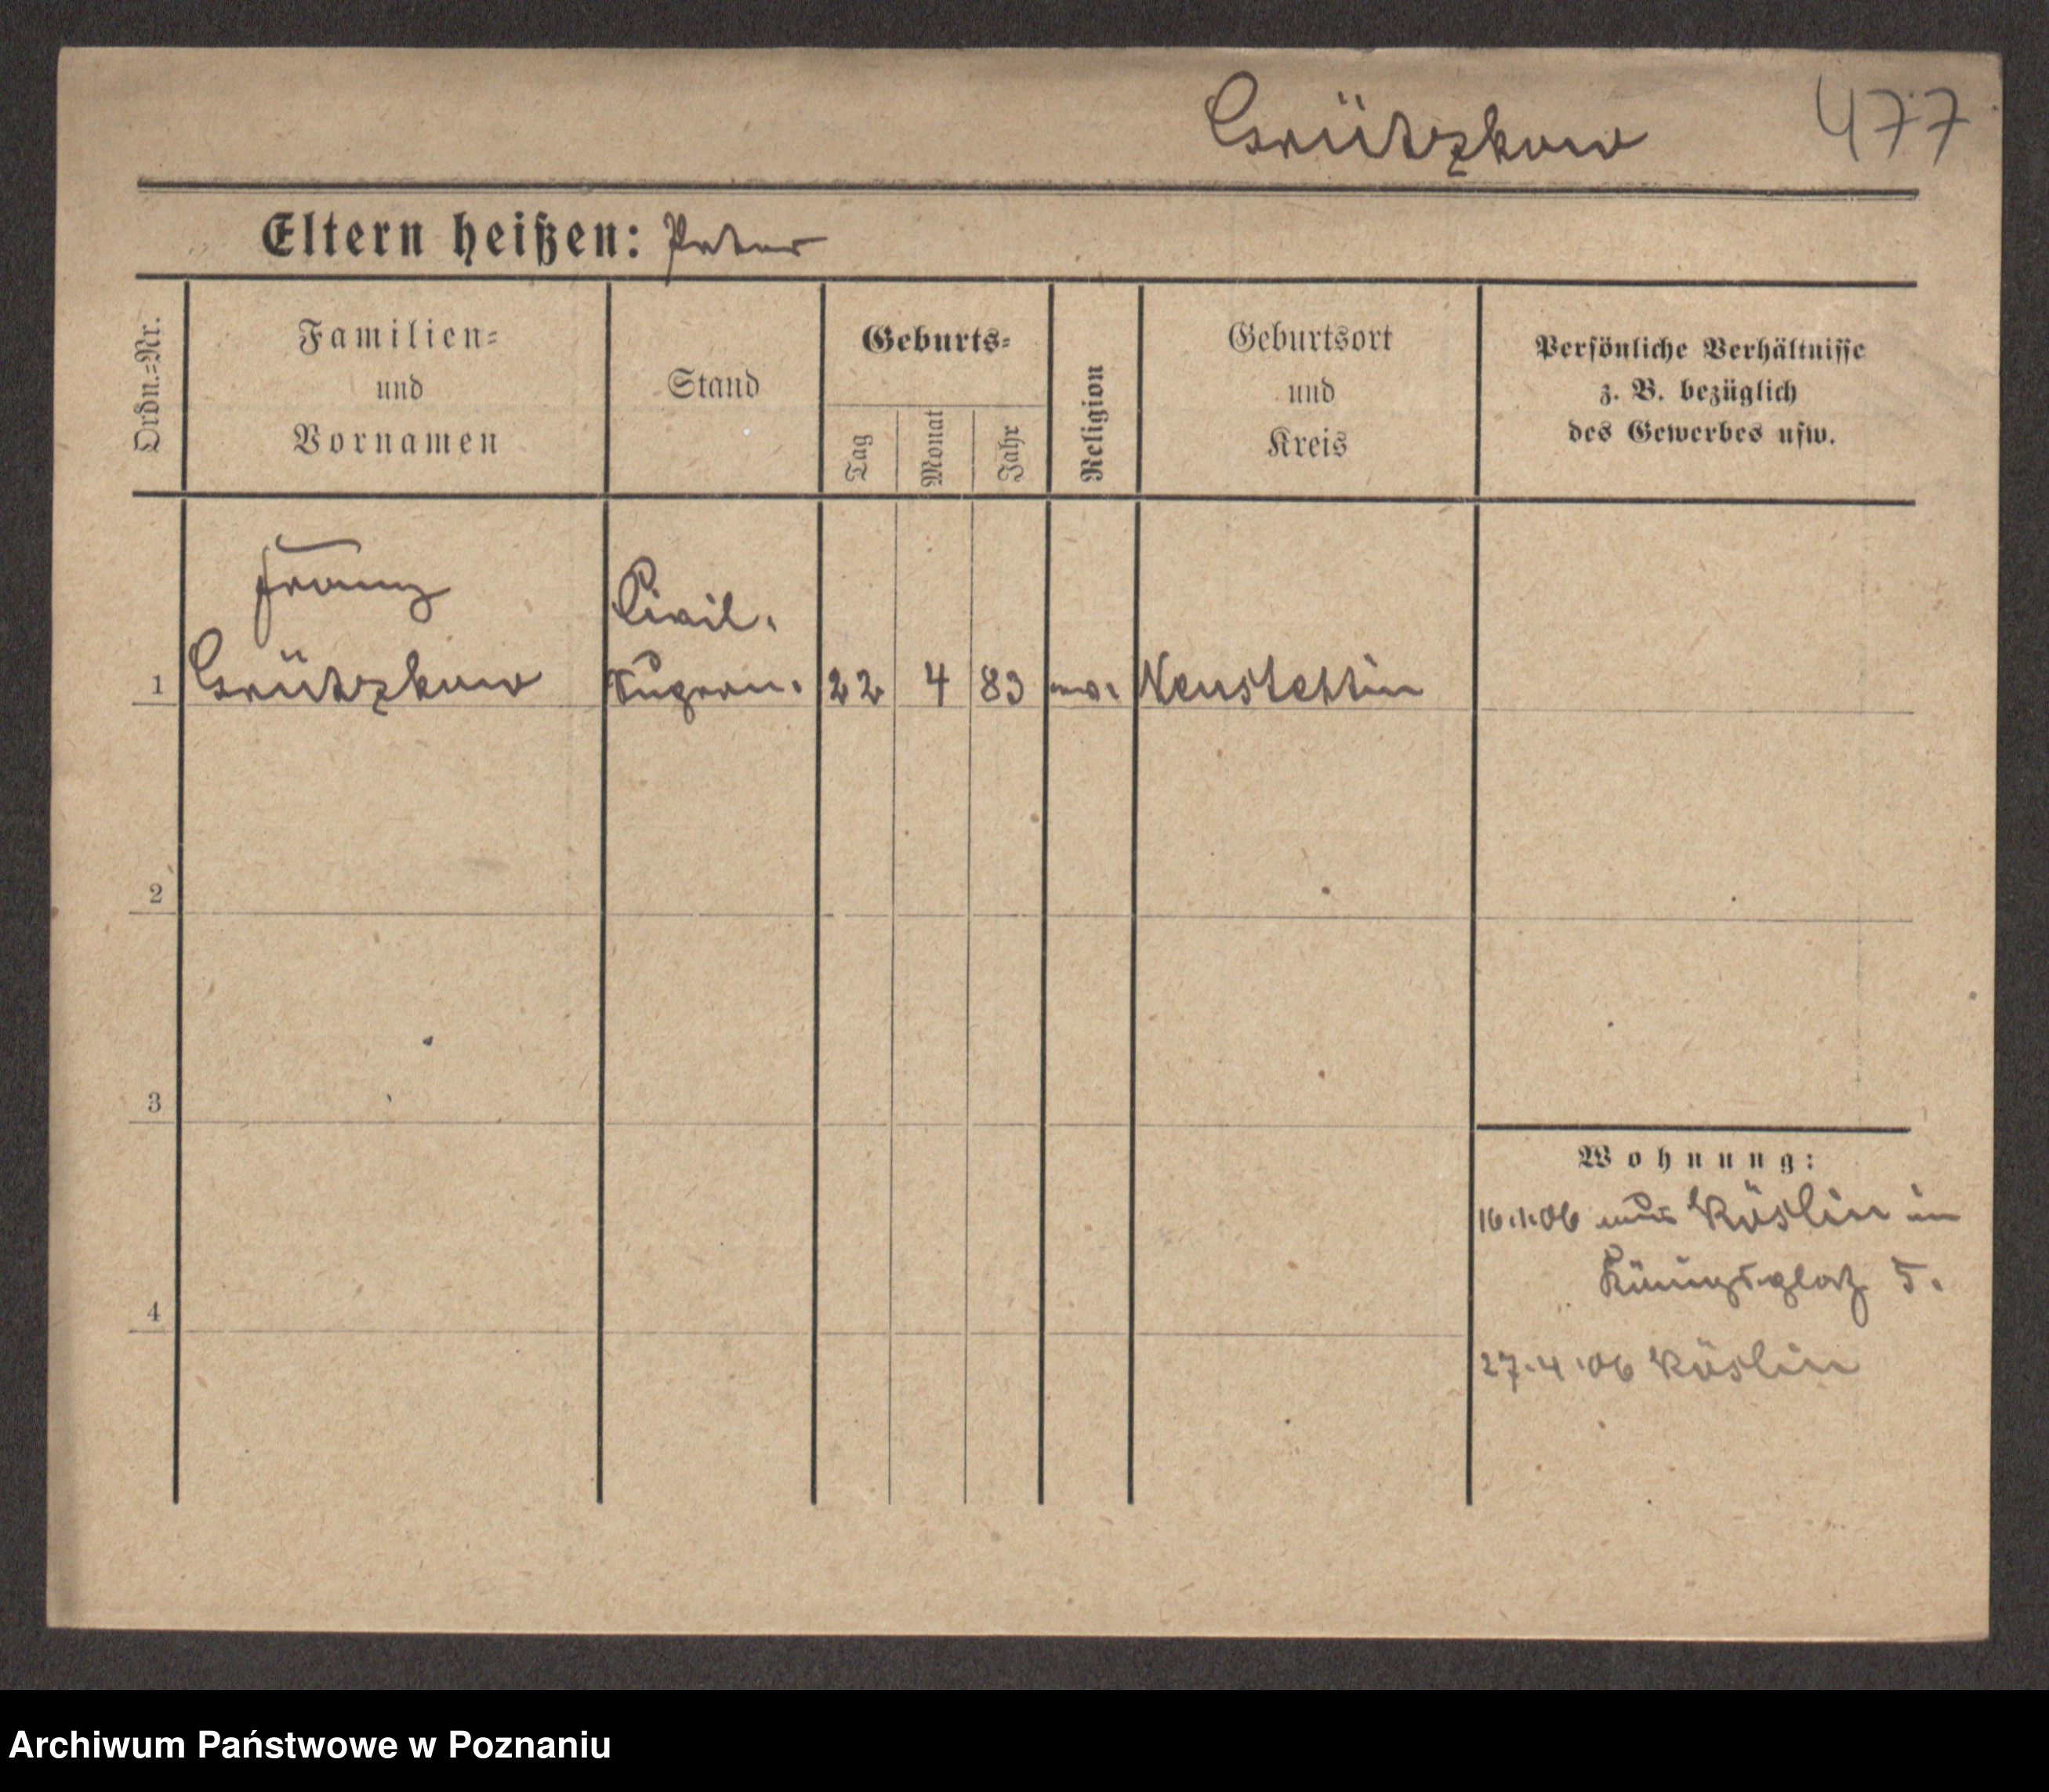 Grützkow 477
Eltern heißen: Peter
Ordn.-Nr.
Familien-
und
Vornamen
Stand
Geburts-
Tag
Monat
Jahr
Religion
Geburtsort
und
Kreis
Persönliche Verhältnisse
z. B. bezüglich
des Gewerbes usw.
Franz
Civil.
1 Grützkow 22 4 83 ev. Neustettin
2
3
4
Wohnung:
16.1.06 aus Köslin in
Königsplatz 5.
27.4.06 Köslin
Archiwum Państwowe w Poznaniu